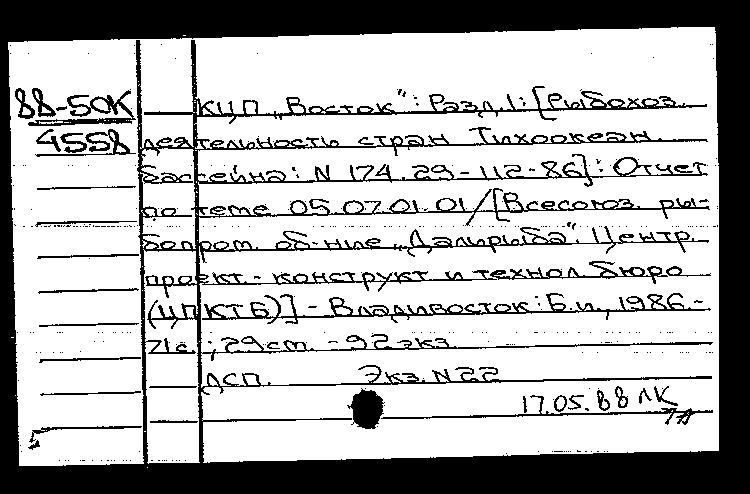 88-50К КЦП „Восток": Разд.1: [Рыбохоз.
4558 деятельность стран Тихоокеан.
бассейна: N 174.29-112-86]: Отчет
по теме 05.07.01.01/[Всесоюз. ры-
бопром. об-ние „Дальрыба". Центр.
проект.- конструкт и технол бюро
(ЦПКТБ)] - Владивосток: Б.и., 1986.-
71с.; 29см. - 92экз.
ДСП. Экз. N22
17.05.88 ЛК